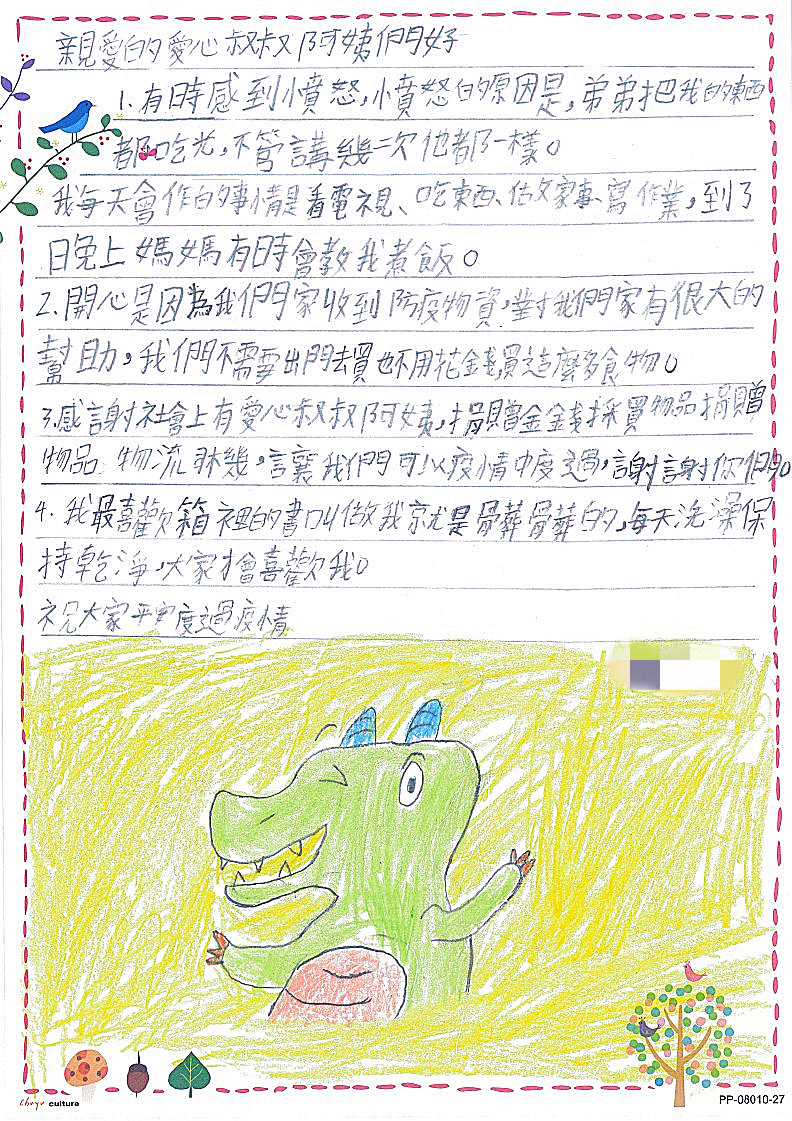 親愛的愛心叔叔阿姨們好
1.有時感到憤怒,憤怒的原因是,弟弟把我的東西
都吃光,不管講幾次他都一樣。
我每天會作的事情是看電視、吃東西、做家事、寫作業,到了
日晚上媽媽有時會教我煮飯。
2.開心是因為我們家收到防疫物資,對我們家有很大的
幫助,我們不需要出門去買也不用花金錢買這麼多食物。
3.感謝社會上有愛心叔叔阿姨,捐贈金金錢採買物品捐贈
物品 物流 幾,讓我們可以疫情中度過,謝謝你們。
4.我最喜歡箱裡的書叫做我就是骨葬骨葬的,每天洗澡保
持乾淨,大家才會喜歡我。
祝大家平安度過疫情
culture
PP-08010-27